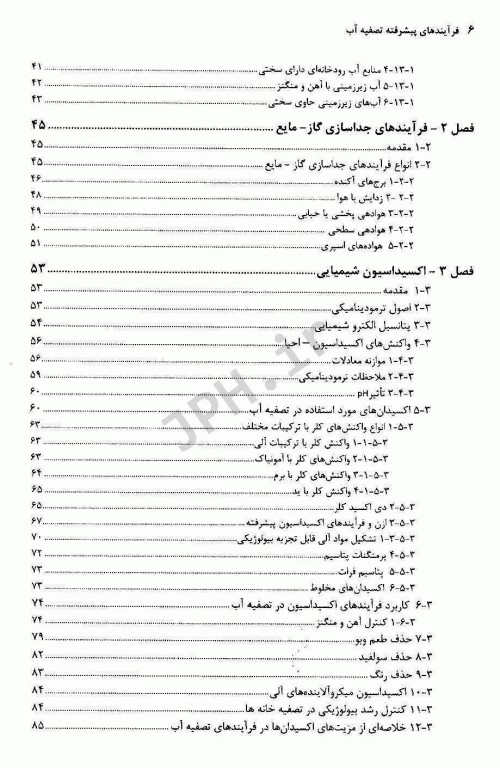 ۶ فرآیندهای پیشرفته تصفیه آب
۱-۱۳-۴ منابع آب رودخانه‌ای دارای سختی ۴۱
۱-۱۳-۵ آب زیرزمینی با آهن و منگنز ۴۲
۱-۱۳-۶ آب‌های زیرزمینی حاوی سختی ۴۳
فصل ۲ – فرآیندهای جداسازی گاز- مایع ۴۵
۲-۱ مقدمه ۴۵
۲-۲ انواع فرآیندهای جداسازی گاز – مایع ۴۵
۲-۲-۱ برج‌های آکنده ۴۶
۲-۲- ۲ زدایش با هوا ۴۸
۲-۲-۳ هوادهی پخشی یا حبابی ۴۹
۲-۲-۴ هوادهی سطحی ۵۰
۲-۲-۵ هواده‌های اسپری ۵۱
فصل ۳ – اکسیداسیون شیمیایی ۵۳
۳-۱ مقدمه ۵۳
۳-۲ اصول ترمودینامیکی ۵۳
۳-۳ پتانسیل الکترو شیمیایی ۵۴
۳-۴ واکنش‌های اکسیداسیون – احیا ۵۶
۳-۴-۱ موازنه معادلات ۵۶
۳-۴-۲ ملاحظات ترمودینامیکی ۵۹
۳-۴-۳ تأثیر pH ۶۰
۳-۵ اکسیدان‌های مورد استفاده در تصفیه آب ۶۰
۳-۵-۱ انواع واکنش‌های کلر با ترکیبات مختلف ۶۳
۳-۵-۱-۱ واکنش کلر با ترکیبات آلی ۶۳
۳-۵-۱-۲ واکنش‌های کلر با آمونیاک ۶۳
۳-۵-۱-۳ واکنش‌های کلر با برم ۶۴
۳-۵-۱-۴ واکنش کلر با ید ۶۵
۳-۵-۲ دی اکسید کلر ۶۵
۳-۵-۳ ازن و فرآیندهای اکسیداسیون پیشرفته ۶۷
۳-۵-۳-۱ تشکیل مواد آلی قابل تجزیه بیولوژیکی ۷۰
۳-۵-۴ پرمنگنات پتاسیم ۷۲
۳-۵-۵ پتاسیم فرات ۷۳
۳-۵-۶ اکسیدان‌های مخلوط ۷۳
۳-۶ کاربرد فرآیندهای اکسیداسیون در تصفیه آب ۷۴
۳-۶-۱ کنترل آهن و منگنز ۷۴
۳-۷ حذف طعم وبو ۷۹
۳-۸ حذف سولفید ۸۲
۳-۹ حذف رنگ ۸۳
۳-۱۰ اکسیداسیون میکروآلاینده‌های آلی ۸۴
۳-۱۱ کنترل رشد بیولوژیکی در تصفیه خانه ها ۸۴
۳-۱۲ خلاصه‌ای از مزیت‌های اکسیدان‌ها در فرآیندهای تصفیه آب ۸۵
JPH.ir